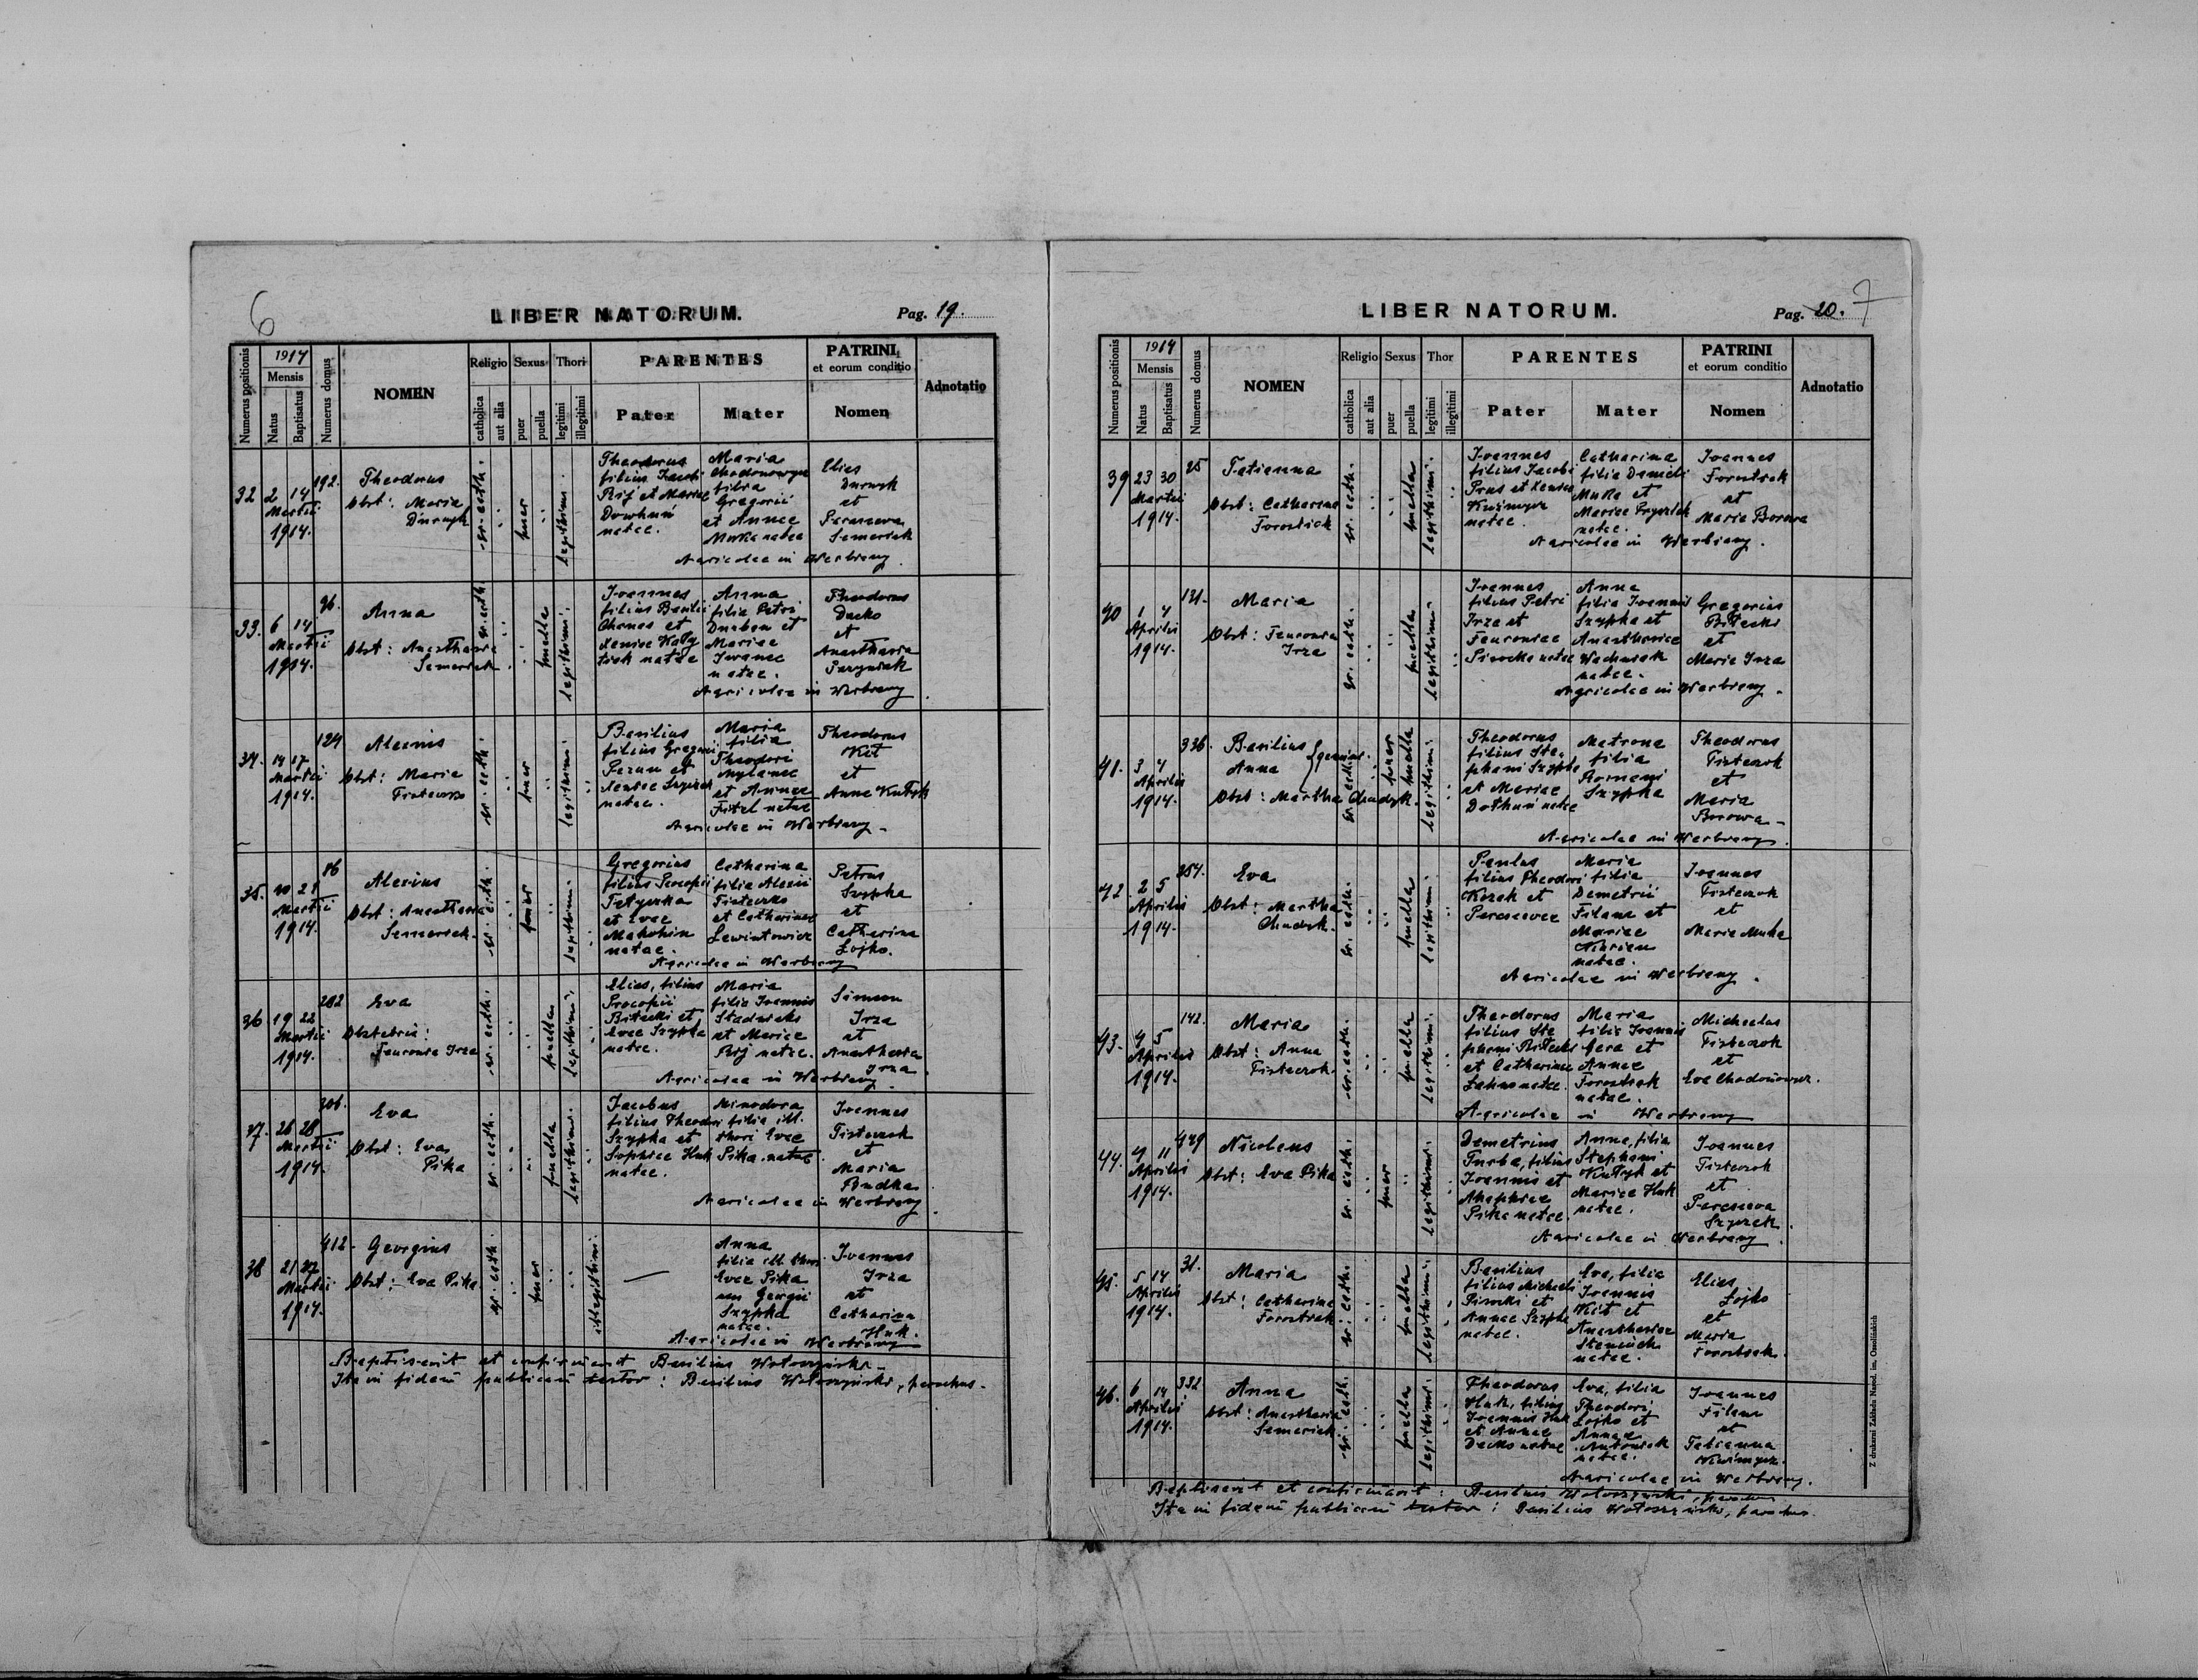 6
LIBER NATORUM.
Pag. 19.
Numerus positionis
1914
Mensis
Natus
Baptisatus
Numerus domus
NOMEN
Religio
catholica
aut alia
Sexus
puer
puella
Thori
legitimi
illegitimi
PARENTES
Pater
Mater
PATRINI
et eorum conditio
Nomen
Adnotatio
32
2 14
Martii
1914.
192.
Theodorus
Obst: Maria
Durnyk
gr. cath.
puer
legitimi
Theodorus
filius Jacobi
Rij et Mariae
Dowhuń
natae.
Maria
filia
Gregorii
et Annae
Muka natae
Elias
Durnyk
et
Parasceva
Semeriak
Agricolae in Werbiany.
33.
6 14
Martii
1914.
96.
Anna
Obst: Anasthasia
Semeriak
gr. cath
puella
legitimi.
Joannes
filius Basilii
Chanas et
Xeniae
natae
Anna
filia Petri
et
Mariae
Iwanec
natae.
Theodorus
Dacko
et
Anasthasia
Agricolae in Werbiany.
34.
14 17
Martii
1914.
124
Alexius
Obst: Maria
gr. cath.
puer
legitimi.
Basilius
filius Gregorii
Pezun et
Xeniae
natae.
Maria
filia
Theodori
et Annae
natae
Theodorus
Kit
et
Anna Kutyk
Agricolae in Werbiany
35.
20 21
Martii
1914.
86
Alexius
Obst: Anasthasia
Semeriak.
gr. cath.
puer
legitimi.
Gregorius
filius Procopii
et Evae
natae.
Catharina
filia Alexii
et Catharinae
Lewintowicz
Petrus
Szypka
et
Catharina
Łojko.
Agricolae in Werbiany
36
19 22
Martii
1914.
202
Eva
Obstetrix:
Feuronia Irza
gr. cath.
puella
legitimi.
Elias, filius
Procopii
Bitecki et
Evae Szypka
natae.
Maria
filia Joannis
Stadnicki
et Mariae
Rij natae.
Simeon
Irza
et
Anasthasia
Irza.
Agricolae in Werbiany
37.
26 28
Martii
1914.
306.
Eva
Obst: Eva
Pika
gr. cath.
puella
legitimi.
Jacobus
filius Theodori
Szypka et
Sophiae Huk
natae.
Minodora
filia ill.
thori Evae
Pika natae.
Joannes
et
Maria
Budka
Agricolae in Werbiany.
38
21 27
Martii
1914.
412.
Georgius
Obst: Eva Pika.
gr. cath.
puer
illegitimi.
Anna
filia ill. thori
Evae Pika
Georgii
Szypka
natae.
Joannes
Irza
et
Catharina
Huk.
Agricolae in Werbiany
Baptisavit et confirmavit Basilius Wołoszyński
Ita in fidem publicam testor: Basilius Wołoszyński, parochus.
7
LIBER NATORUM.
Pag. 20.
Numerus positionis
1914
Mensis
Natus
Baptisatus
Numerus domus
NOMEN
Religio
catholica
aut alia
Sexus
puer
puella
Thor
legitimi
illegitimi
PARENTES
Pater
Mater
PATRINI
et eorum conditio
Nomen
Adnotatio
39
23 30
Martii
1914.
25
Tatianna
Obst: Catharina
Forostiak
gr. cath.
puella
legitimi.
Joannes
filius Jacobi
Prus et Xeniae
Kuźmycz
natae.
Catharina
filia Danieli
Muka et
Mariae
natae.
Joannes
Forostiak
et
Maria Borowa
Agricolae in Werbiany.
40
1 4
Aprilis
1914.
131.
Maria
Obst: Feuronia
Irza
gr. cath.
puella
legitimi.
Joannes
filius Petri
Irza et
Feuroniae
Pisocka natae
Anna
filia Joannis
Szypka et
Anasthasiae
natae.
Gregorius
Bitecki
et
Maria Irza
Agricolae in Werbiany.
41.
3 4
Aprilis
1914.
336.
Basilius
Anna
gemini
Obst: Martha Chudyk.
gr. cath.
puer
puella
legitimi.
Theodorus
filius Ste-
phani Szypka
et Mariae
natae
Matrona
filia
Romani
Szypka
Theodorus
et
Maria
Borowa
Agricolae in Werbiany.
42.
2 5
Aprilis
1914.
354.
Eva
Obst: Martha
Chudyk.
gr. cath.
puella
legitimi.
Paulus
filius Theodori
Kozak et
Parascevae
Maria
filia
Demetrii
Filane et
Mariae
natae.
Joannes
et
Maria Muka
Agricolae in Werbiany.
43.
4 5
Aprilis
1914.
142.
Maria
Obst: Anna
gr. cath.
puella
legitimi.
Theodorus
filius Ste
phani Bitecki
et Catharinae
natae.
Maria
filia Joannis
et
Annae
Forostiak
natae.
Michaelus
et
Eva
Agricolae in Werbiany
44.
4 11
Aprilis
1914.
429
Nicolaus
Obst: Eva Pika
gr. cath.
puer
legitimi.
Demetrius
Turba, filius
Joannis et
Pika natae.
Anna, filia
Stephani
Kutyk et
Mariae Huk
natae.
Joannes
et
Parasceva
Agricolae in Werbiany.
45.
5 14
Aprilis
1914.
31.
Maria
Obst: Catharina
Forostiak.
gr. cath.
puella
legitimi.
Basilius
filius Michaeli
Pisocki et
Annae Szypka
natae.
Eva, filia
Joannis
Kit et
Anasthasiae
natae.
Elias
Łojko
et
Maria
Forostiak.
46.
6 14
Aprilis
1914.
332
Anna
Obst: Anasthasia
Semeriak.
gr. cath.
puella
legitimi.
Theodorus
Huk, filius
Joannis Huk
et Annae
Dacko natae
Eva, filia
Theodori
Łojko et
Annae
natae.
Joannes
Filane
et
Tatianna
Kuźmycz.
Agricolae in Werbiany.
Baptisavit et confirmavit: Basilius Wołoszyński, parochus
Ita in fidem publicam testor: Basilius Wołoszyński, parochus.
Z drukarni Zakładu Narod. im. Ossolińskich